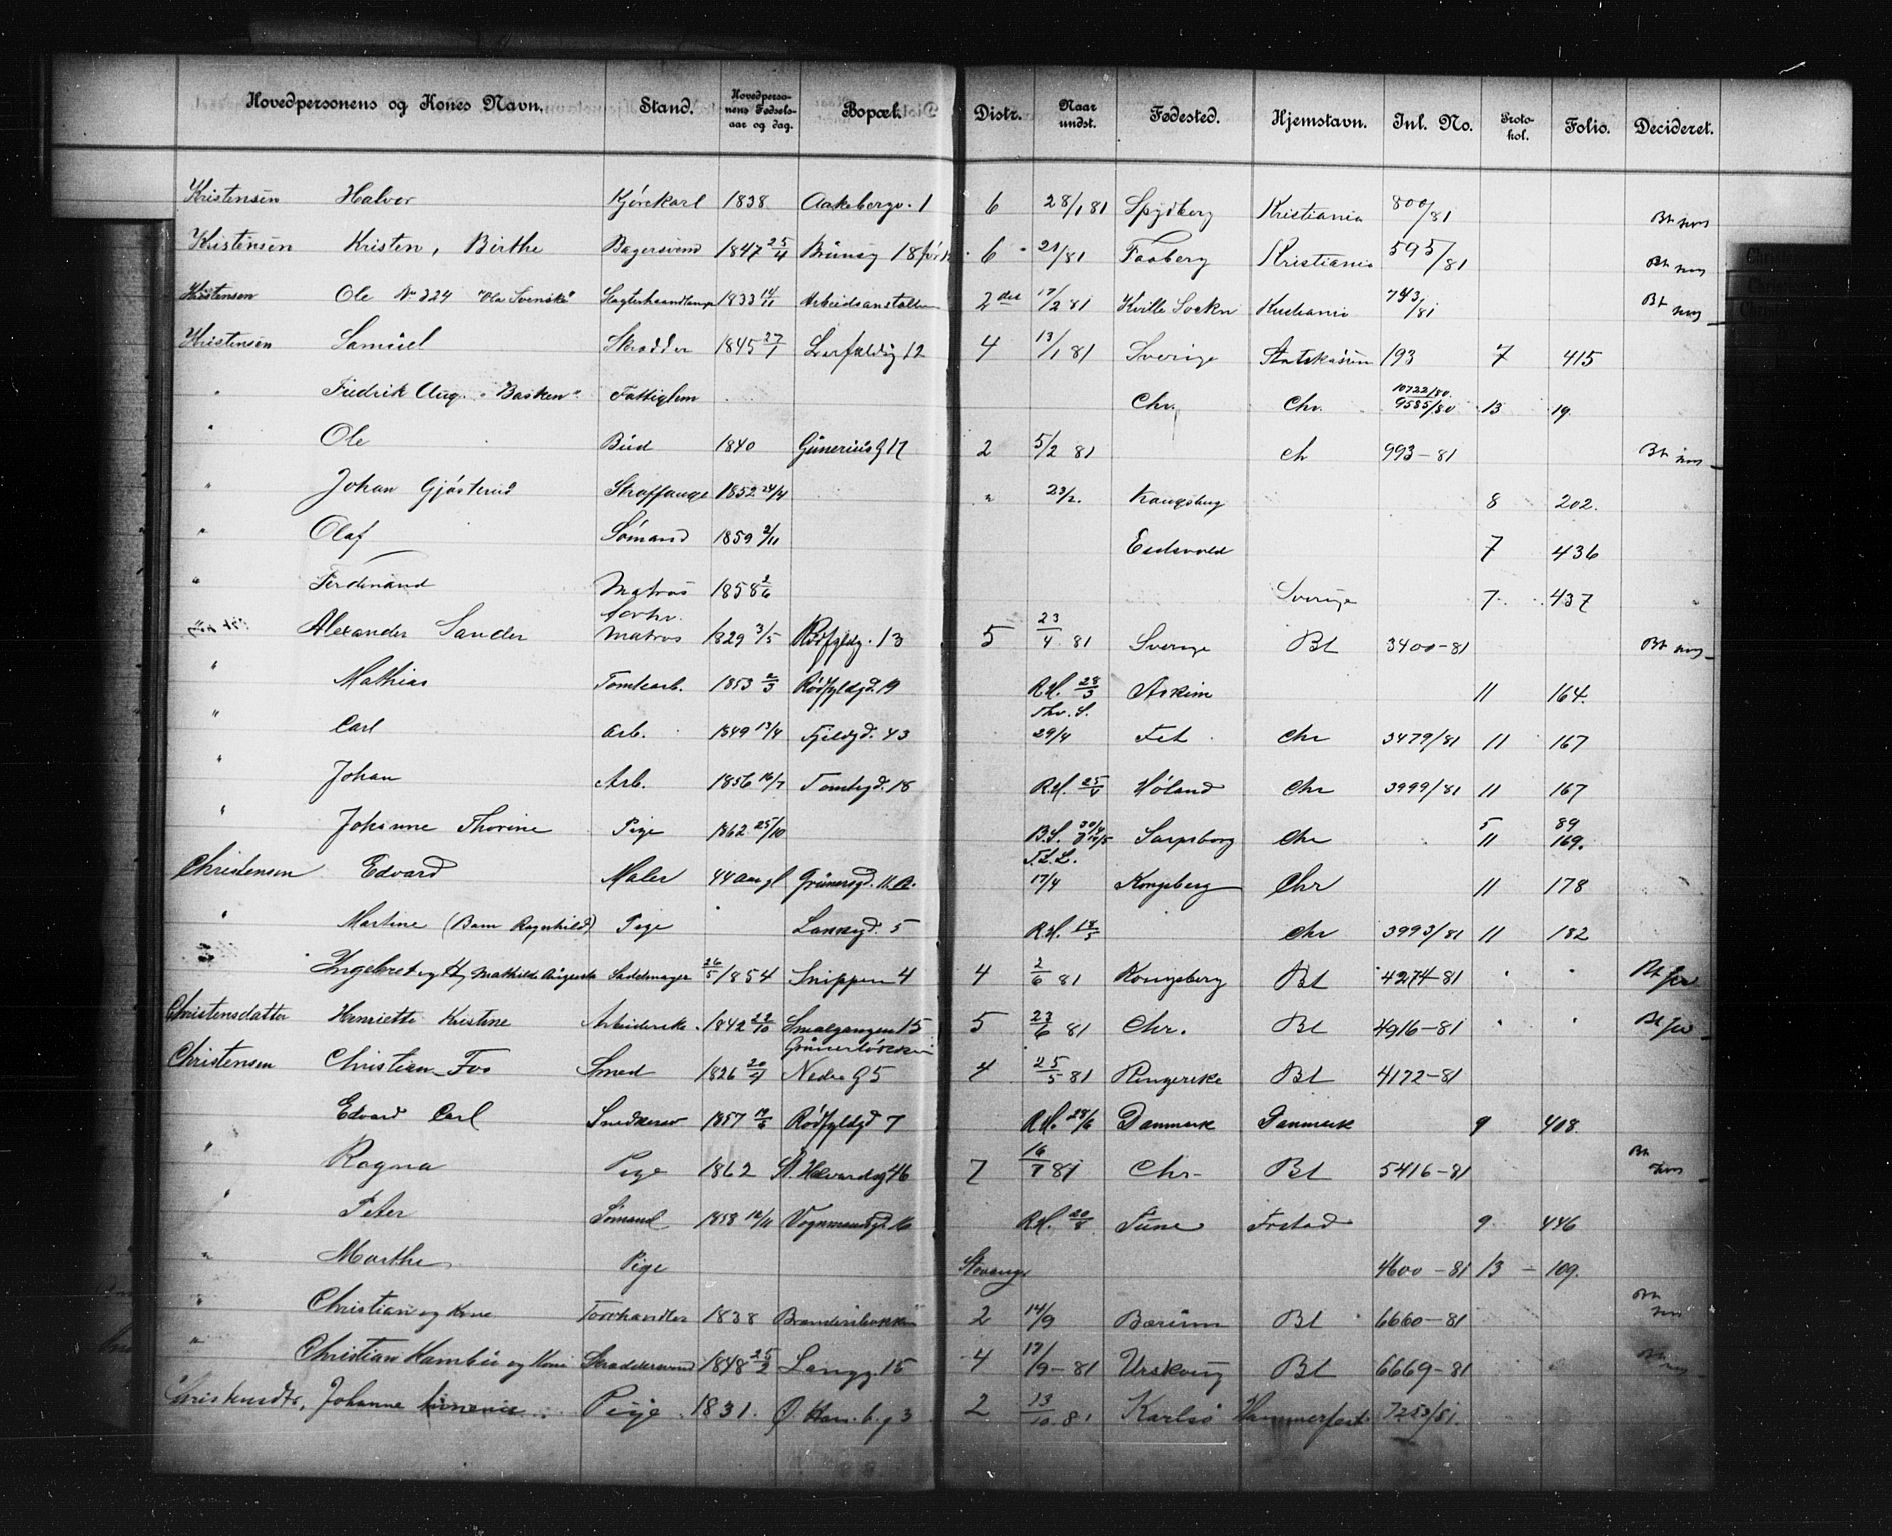 Hovedpersonens og Kones Navn. Stand. Hovedpersonens Fødselsaar og dag. Bopæl. Distr. Naar undst. Fødested. Hjemstavn. Inl. No. Protokol. Folio. Decideret.
Kristensen Halvor Kjørekarl 1838 Aakebergv. 1 6 28/1 81 Spydberg Kristiania 800/81 Bt
Kristensen Kristen, Birthe Bagersvend 1847 25/4 18 6 21/81 Faaberg Kristiania 595/81 Bt
Kristensen Ole No 224 "Ola Svenske" 1833 14/11 Arbeidsanstalten 2 det 17/2 81 Kville Sockn Kristiania 743/81 Bt
Kristensen Samuel Skrædder 1845 27/1 Leerfaldsg 12 4 13/1 81 Sverige Statskassen 193 7 415
" Fredrik Aug. "Basken" Fattiglem Chr. Chr. 10722/80. 9585/80 13 19.
" Ole Bud 1840 Guneriusg 17 2 5/2 81 Ch 993-81 Bt
" Johan Gjøsterud Straffange 1852 24/4 " 23/2. Kongsberg 8 202.
" Olaf Sømand 1859 2/11 Eidsvold 7 436
" Ferdinand Matros 1858 2/6 Sverige 7 437
" Alexander Sander forhv. Matros 1829 3/5 Rødfyldg. 13 5 23/4 81 Sverige Bt 3400-81 Bt
" Mathias Tomtearb. 1853 2/3 Rødfyldgd. 19 R.H. 28/3 Askim 11 164.
" Carl Arb. 1849 13/4 Fjeldgd. 43 Thv. S. 29/4 Fet Chr 3479/81 11 167
" Johan Arb. 1856 16/7 Tomtegd. 18 R.H. 25/5 Høland Chr 3999/81 11 167
" Johanne Thorine Pige 1862 25/10 B.S. Sarpsborg Chr 5 89 11 169.
Christensen Edvard Maler 44 aar gl Grünersgd. 11.a. T.L.L. 17/4 Kongsberg Chr 11 178
" Martine (Barn Ragnhild) Pige Lakkegd. 5 R.H. 18/5 Chr 3993/81 11 182
" Ingebret og H. Mathilde Augusta Sadelmager 26/5 1854 Snippen 4 4 2/6 81 Kongsberg Bt 4274-81 Bt
Christensdatter Henriette Kristine Arbeiderske 1842 22/10 Smalgangen 15 5 23/6 81 Chr. Bt 4916-81 Bt
Christensen Christian Fos Smed 1826 20/9 Grünerløkken Nedre G 5 4 25/5 81 Ringerike Bt 4172-81
Edvard Carl Snedkersv 1857 19/6 Rødfyldgd 7 R.H. 28/6 Danmark Danmark 9 408.
" Ragna Pige 1862 St. Halvardsg 46 7 16/7 81 Chr- Bt 5416-81 Bt
" Peter Sømand 1858 12/11 Vognmandsgd. 16 R.H. 20/8 Tune Frstad 9 446
" Marthe Pige Stavanger 4600-81 13 - 109.
" Christian og Kone Torvhandler 1838 2 14/9 Bærum Bt 6660-81 Bt
" Christian Hambu og Kone Skræddersvend 1848 25/2 Langg. 15 4 17/9-81 Urskoug Bt 6669-81 Bt
Johanne Pige. 1831. Ø. Ham. b. g 3 2 13/10 81 Karlsø Hammerfest 7253/81.